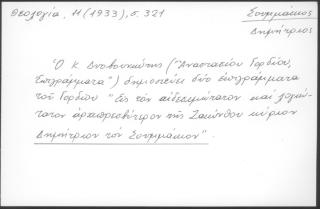 Θεολογία, 11 (1933), σ. 321
Σουμμάκιος
Δημήτριος
Ὁ Κ. Δυοβουνιώτης ("Ἀναστασίου Γορδίου,
Ἐπιγράμματα") δημοσιεύει δύο ἐπιγράμματα
τοῦ Γορδίου "Εἰς τὸν αἰδεσιμώτατον καὶ λογιώ-
τατον ἀρχιπρεσβύτερον τῆς Ζακύνθου κύριον
Δημήτριον τὸν Σουμμάκιον".